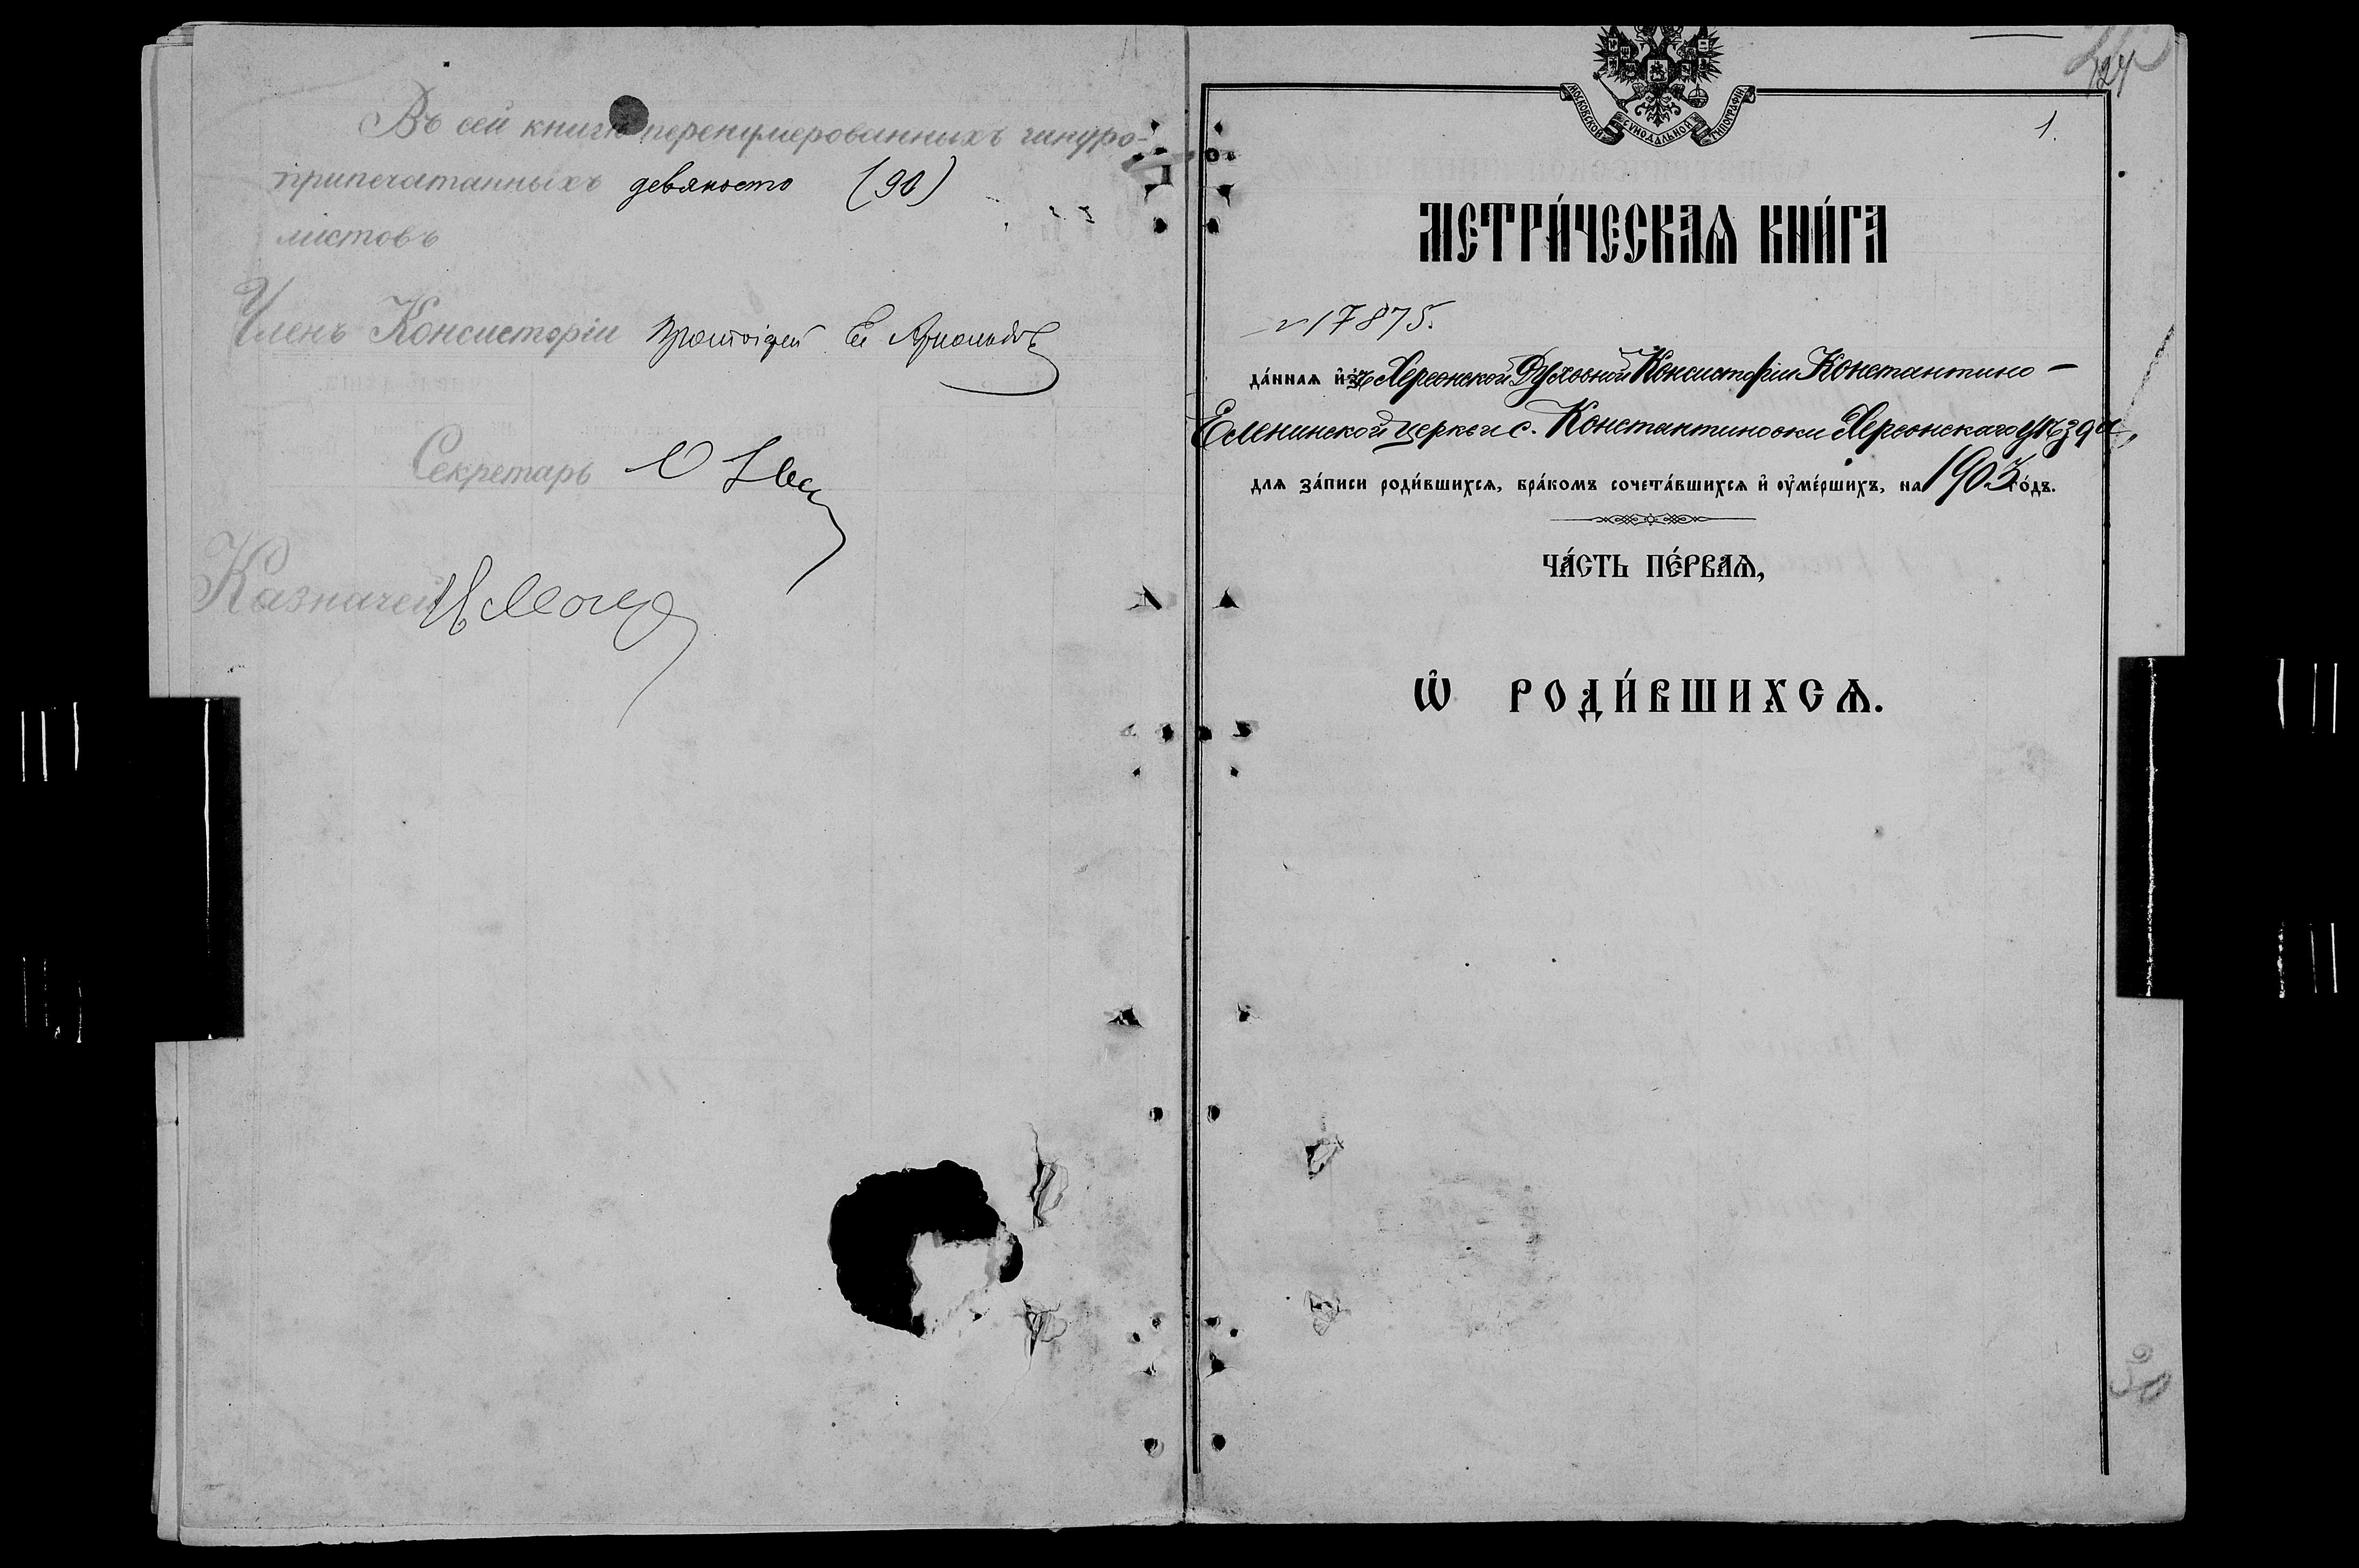 Въ сей книгѣ перенумерованныхъ шнуро-
припечатанныхъ девяносто (90)
листовъ
Членъ Консисторіи Протоіерей
Секретарь
Казначей
124
1.
МОСКОВСКОЙ СѴНОДАЛЬНОЙ ТИПОГРАФІИ
МЕТРИ́ЧЕСКАѦ КНИ́ГА
17875.
да́ннаѧ и҆зъ Херсонской Духовной Консисторіи Константино-
Еленинской церкви с. Константиновки Херсонскаго уѣзда,
для за́писи роди́вшихсѧ, бра́комъ сочета́вшихсѧ и҆ оу҆ме́ршихъ, на 1903 го́дъ.
ЧА́СТЬ ПЕ́РВАѦ,
Ѡ҆ РОДИ́ВШИХСѦ.
90